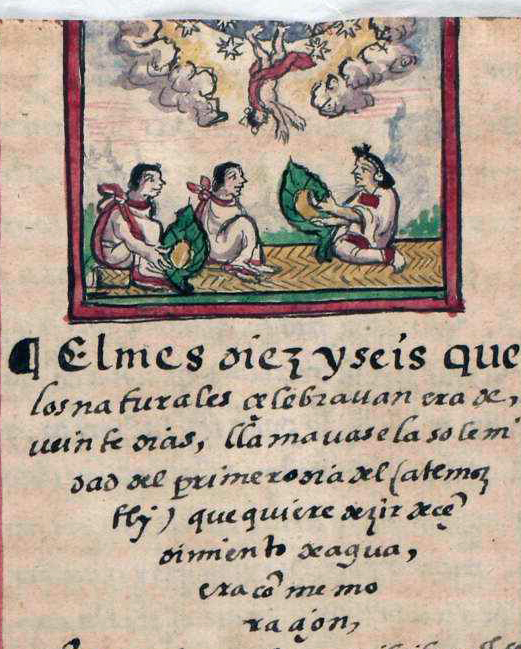 ¶ El mes diez y seis que
los naturales çelebravan era de,
veinte dias, llamavase la solemi
dad del primero dia del (atemoz
tly) que quiere dezir deçē
dimiento de agua,
era cō me mo
raçion,